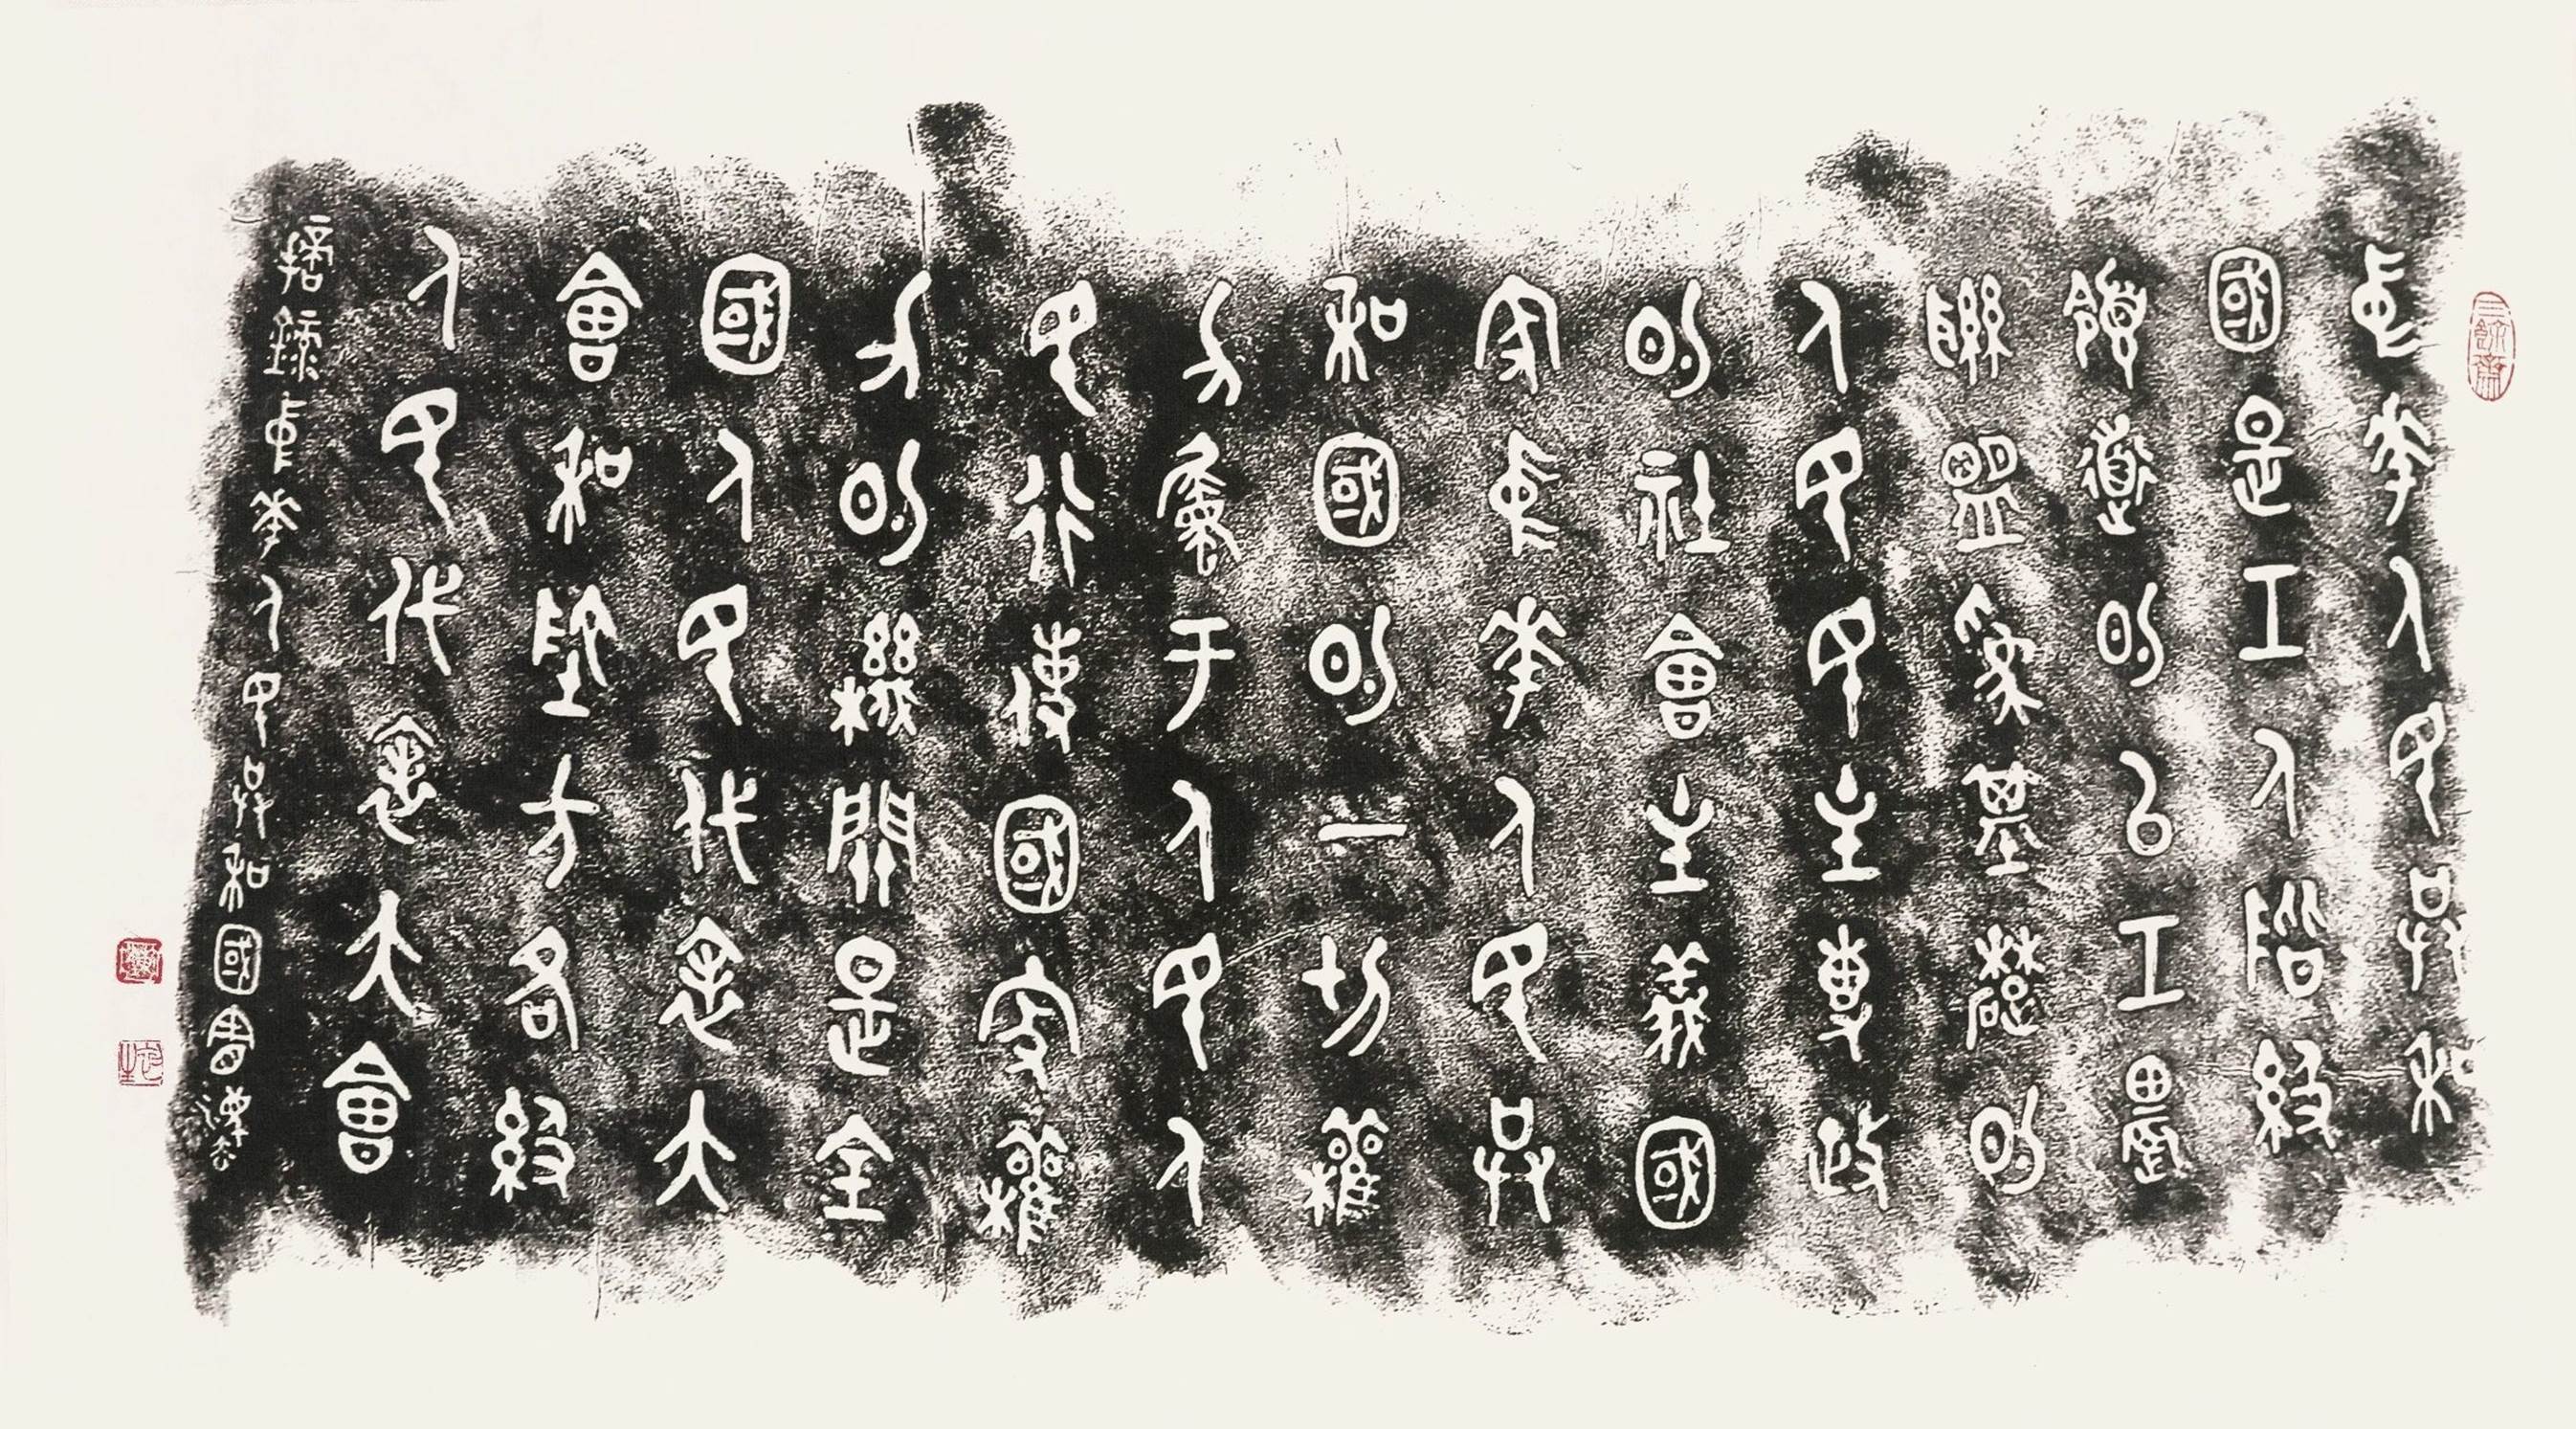 中華人民共和
國是工人階級
領導的以工農
聯盟為基礎的
人民民主專政
的社會主義國
家中華人民共
和國的一切權
力屬于人民人
民行使國家權
力的機關是全
國人民代表大
會和地方各級
人民代表大會
摘錄中華人民共和國憲灋